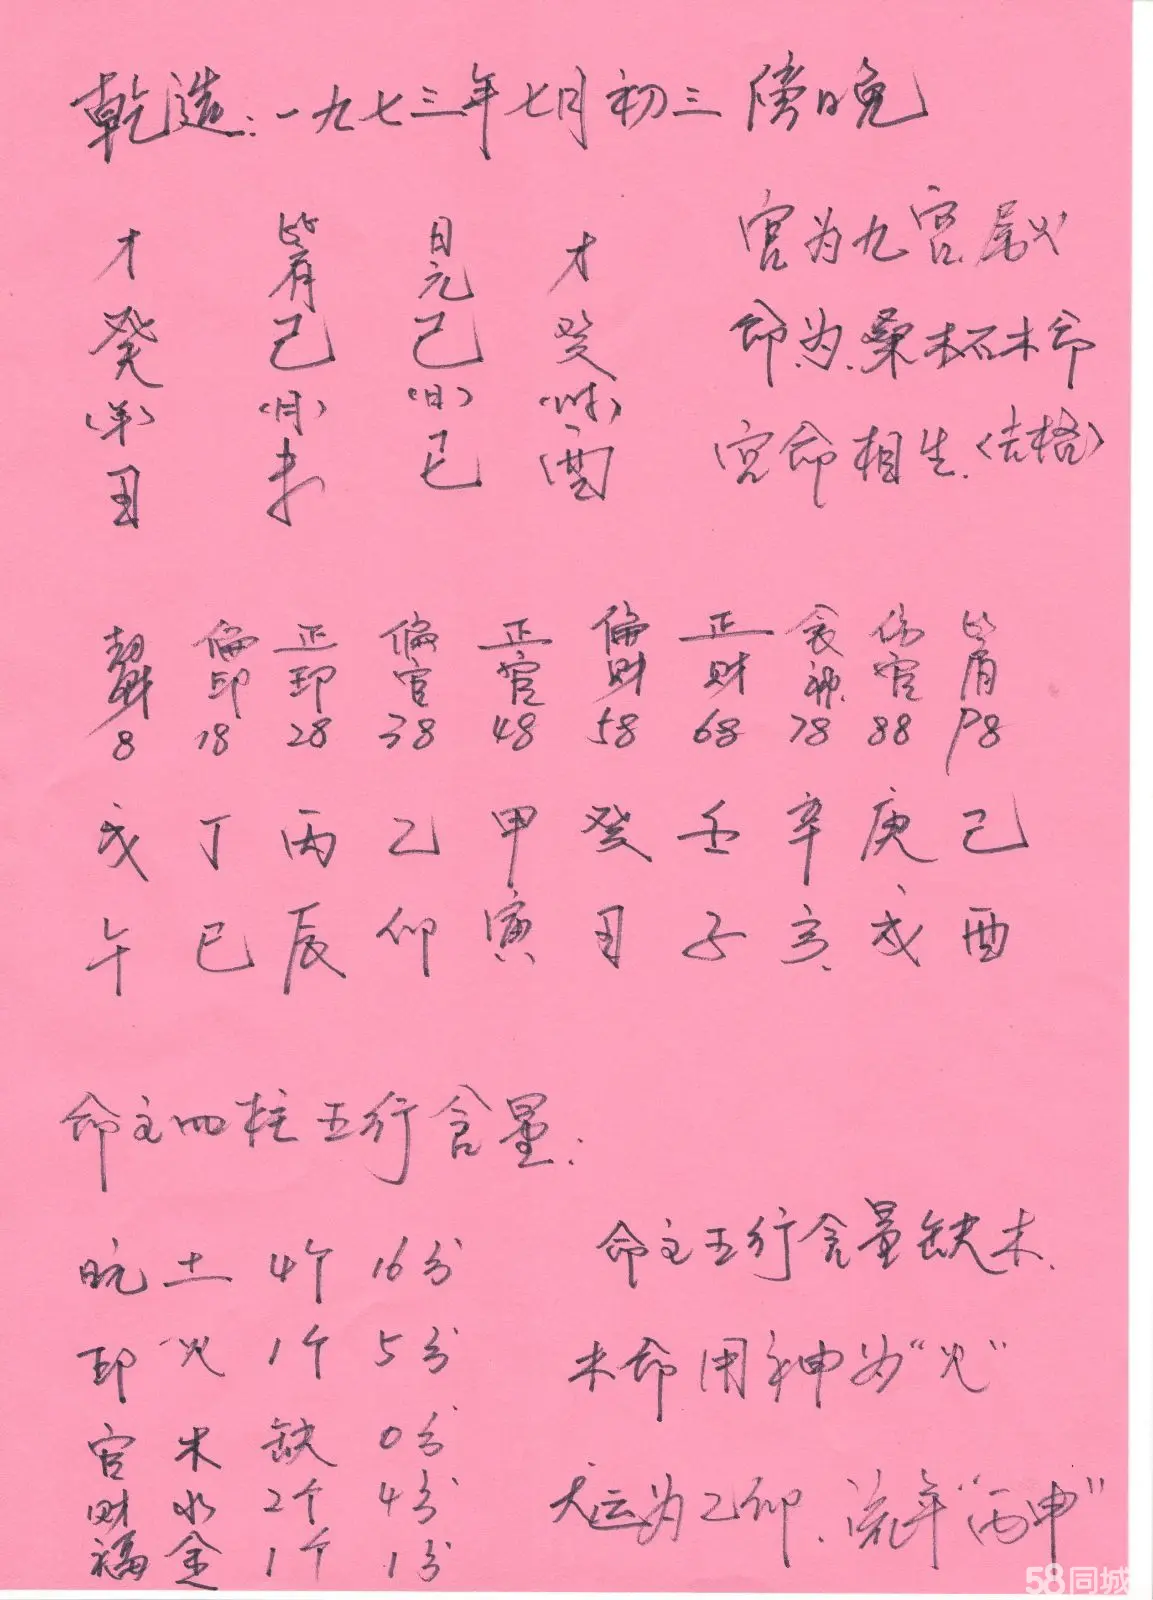 乾造:一九七三年七月初三傍晚
才 比肩 日元 才
癸 己 己 癸
(年) (月) (日) (时)
丑 未 巳 酉
宫为九宫.尾火
命为.桑柘木命
宫命相生.(吉格)
劫财 偏印 正印 偏官 正官 偏财 正财 食神 伤官 比肩
8 18 28 38 48 58 68 78 88 98
戊 丁 丙 乙 甲 癸 壬 辛 庚 己
午 巳 辰 卯 寅 丑 子 亥 戌 酉
命主四柱五行含量:
土 4个 16分
印 火 1个 5分
官 木 缺 0分
财 水 2个 4分
福 金 1个 1分
命主五行含量缺木.
木命用神为"火"
大运为乙卯.流年"丙申"
58同城